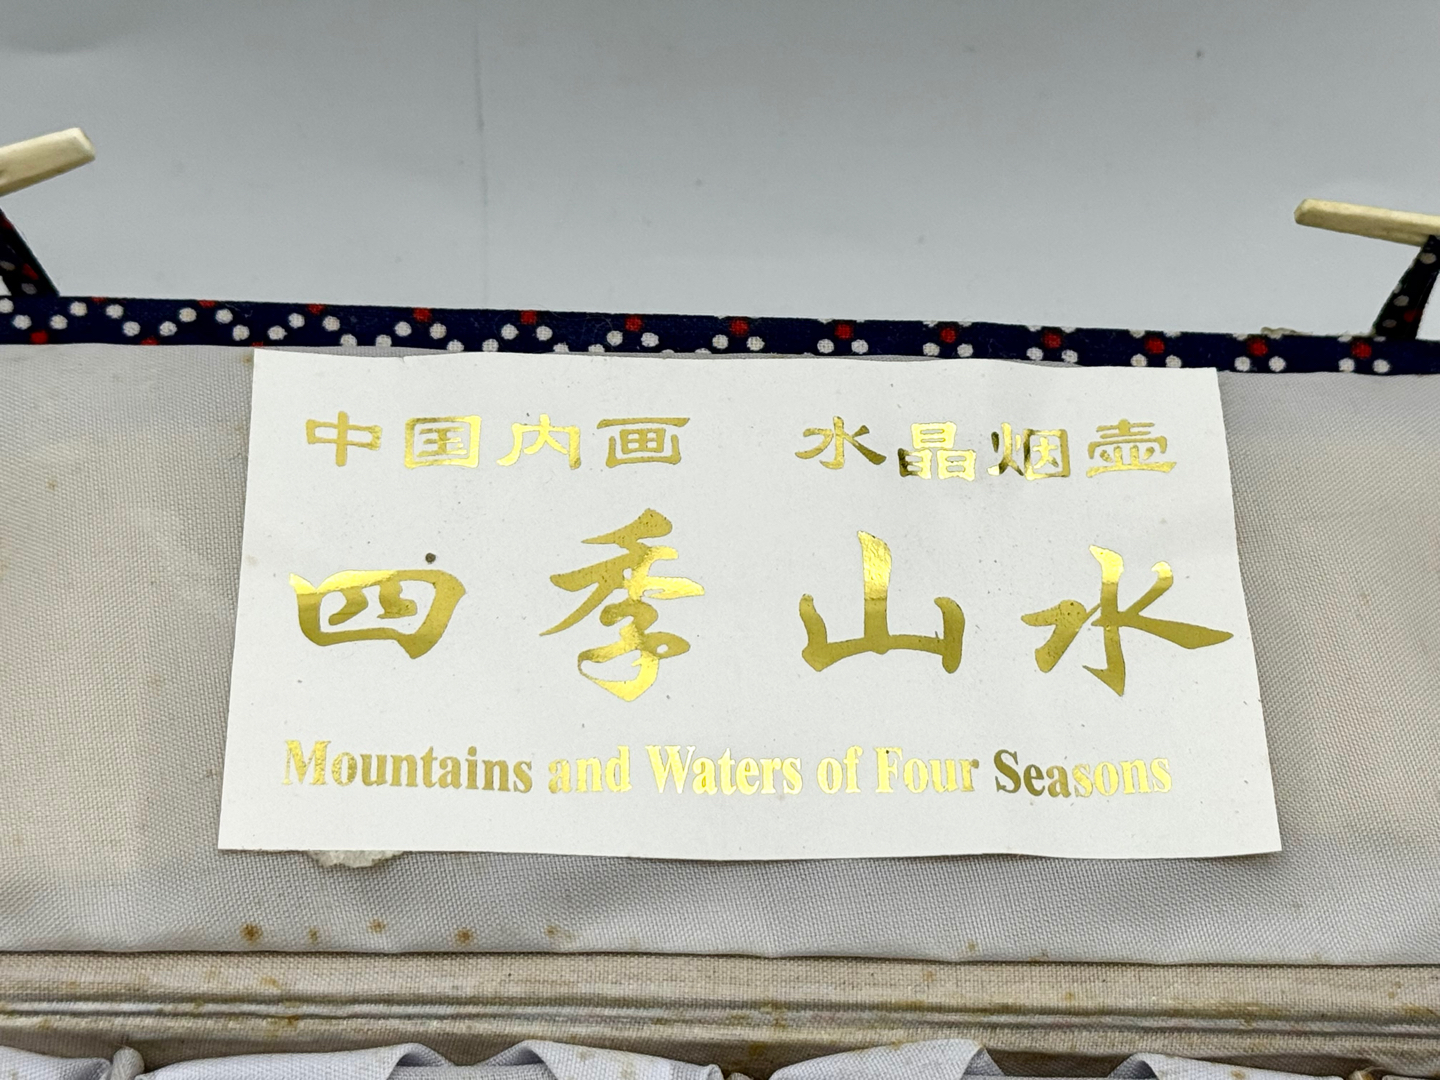 中国内画 水晶烟壶
四季山水
Mountains and Waters of Four Seasons